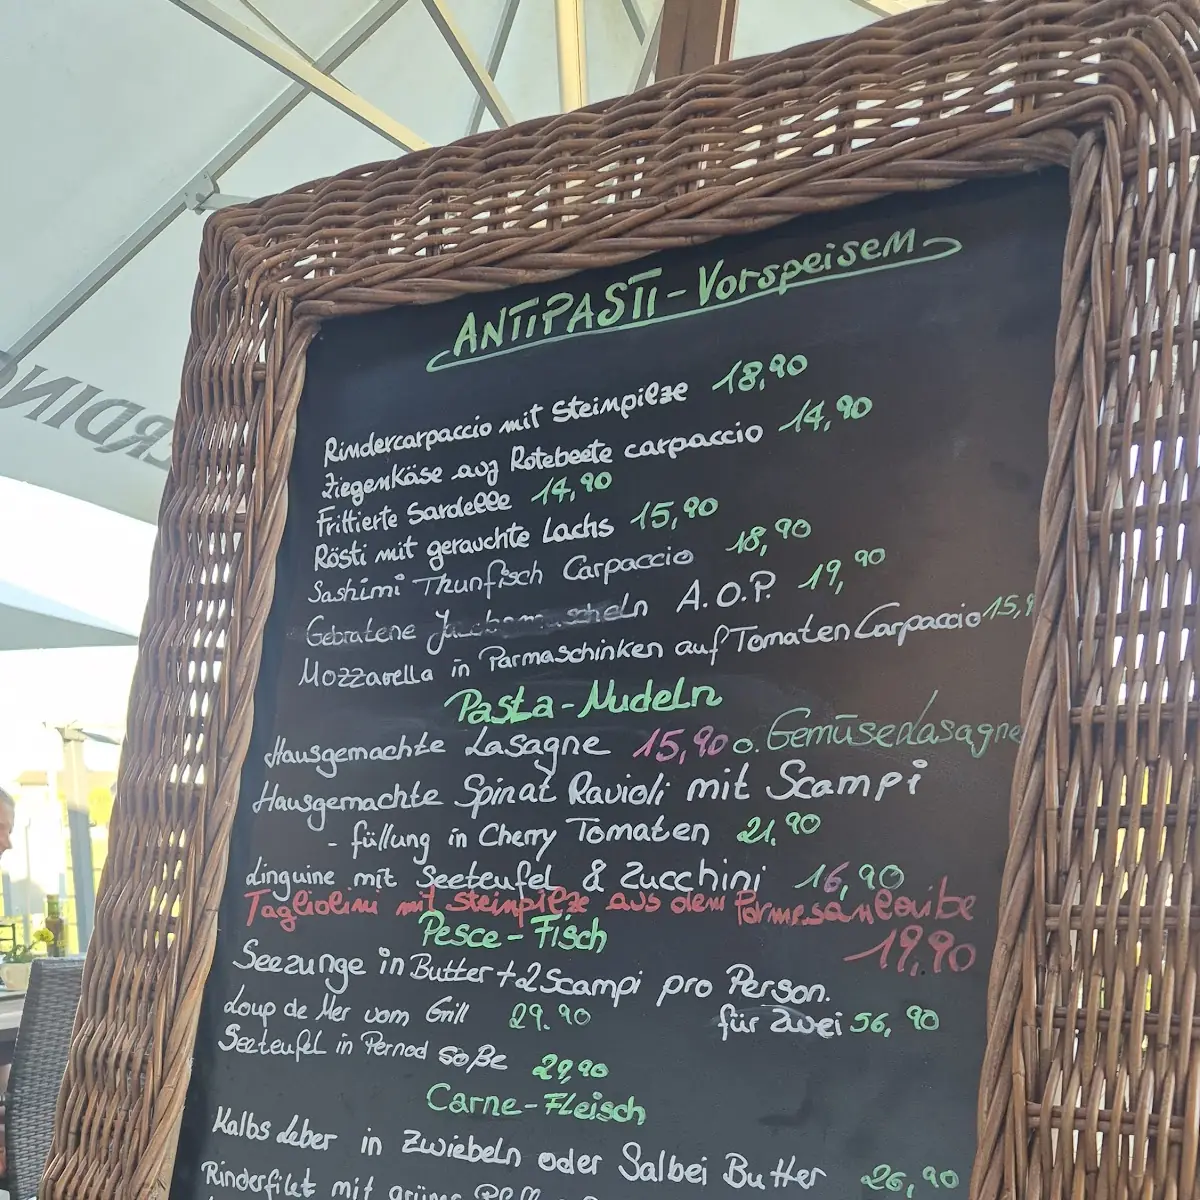 ANTIPASTI-Vorspeisem
Rindercarpaccio mit Steinpilze 18,90
Ziegenkäse auf Rotebeete carpaccio 14,90
Frittierte Sardelle 14,90
Rösti mit gerauchte Lachs 15,90
Sashimi Thunfisch Carpaccio 18,90
Gebratene Jacobsmuscheln A.O.P. 19,90
Mozzarella in Parmaschinken auf Tomaten Carpaccio 15,9
Pasta-Nudeln
Hausgemachte Lasagne 15,90 o. Gemüselasagne
Hausgemachte Spinat Ravioli mit Scampi
- füllung in Cherry Tomaten 21.90
Linguine mit Seeteufel & Zucchini 16,90
Tagliolini mit steinpilze aus dem Parmesanlaibe
19,90
Pesce-Fisch
Seezunge in Butter + 2 Scampi pro Person.
für zwei 56,90
Loup de Mer vom Grill 29.90
Seeteufel in Pernod soße 29,90
Carne-Fleisch
Kalbsleber in Zwiebeln oder Salbei Butter 26,90
Rinderfilet mit grüner
ERDING